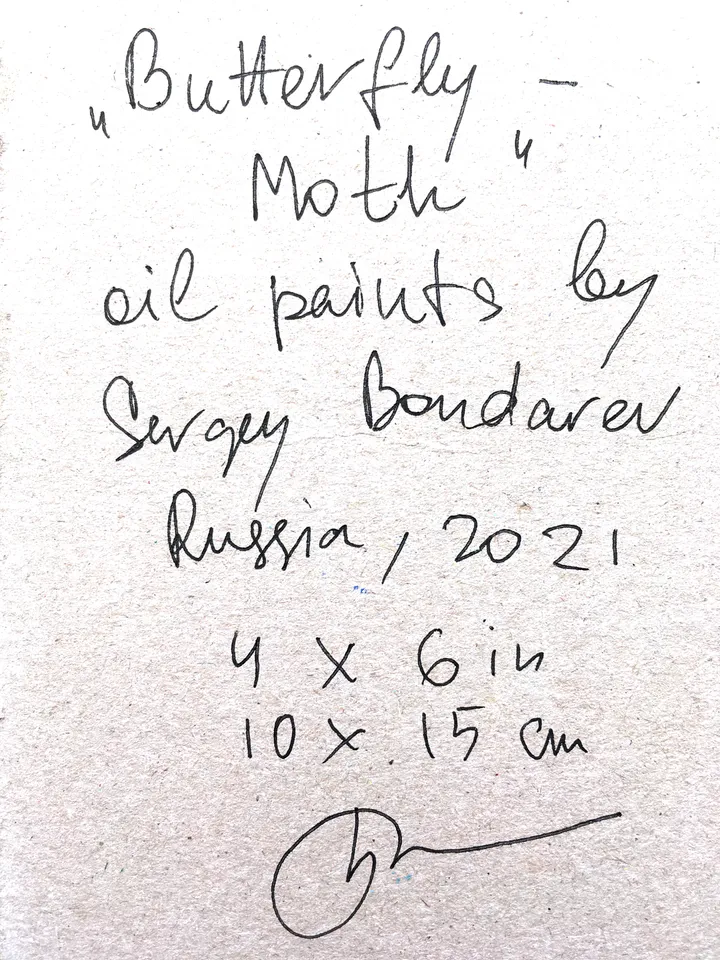 „Butterfly -
Moth"
oil paints by
Sergey Bondarev
Russia, 2021
4 x 6 in
10 x 15 cm